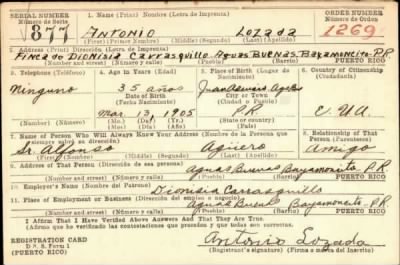 SERIAL NUMBER
1. Name (Print) Nombre (Letra de Imprenta)
ORDER NUMBER
Número de Serie
Número de Orden
877
ANTONIO
LOZADA
1269
(First) (Primer Nombre) (Middle) (Segundo) (Last) (Apellido)
2. Address (Print) Dirección (Letra de Imprenta)
Finca de Dionisia Carrasquillo Aguas Buenas, Bayamoncito, P.R.
(Number and street) (Número y calle) (Town) (Pueblo) Barrio
PUERTO RICO
3. Telephone (Teléfono)
4. Age in Years (Edad)
5. Place of Birth (Lugar de Nacimiento)
6. Country of Citizenship (Ciudadanía)
Ninguno
35 años
Date of Birth
(Fecha Nacimiento)
City or Town
(Ciudad o Pueblo)
Mar. 13, 1905
P.R.
E.U.A.
(Number) (Número)
(Mo.) (Day) (Yr.)
State or country
7. Name of Person Who Will Always Know Your Address (Nombre de la Persona que siempre sabrá su dirección)
8. Relationship of That Person (Parentesco)
Sr. Alfonso
Agüero
Amigo
(First) (Middle) (Last) (Apellido)
9. Address of That Person (Dirección de esa persona)
Aguas Buenas Bayamoncito, P.R.
(Number and street) (Número y calle) (Town) (Pueblo) Barrio
PUERTO RICO
10. Employer's Name (Nombre del Patrono)
Dionisia Carrasquillo
11. Place of Employment or Business (Dirección del empleo o negocio)
Aguas Buenas Bayamoncito, P.R.
(Number and street) (Número y calle) (Town) (Pueblo) Barrio
PUERTO RICO
I Affirm That I Have Verified Above Answers And That They Are True.
(Afirmo que he verificado las contestaciones que preceden y que todas son correctas.
REGISTRATION CARD
D. S. S. Form 1
Antonio Lozada
Registrant's signature (Firma o marca del inscrito)